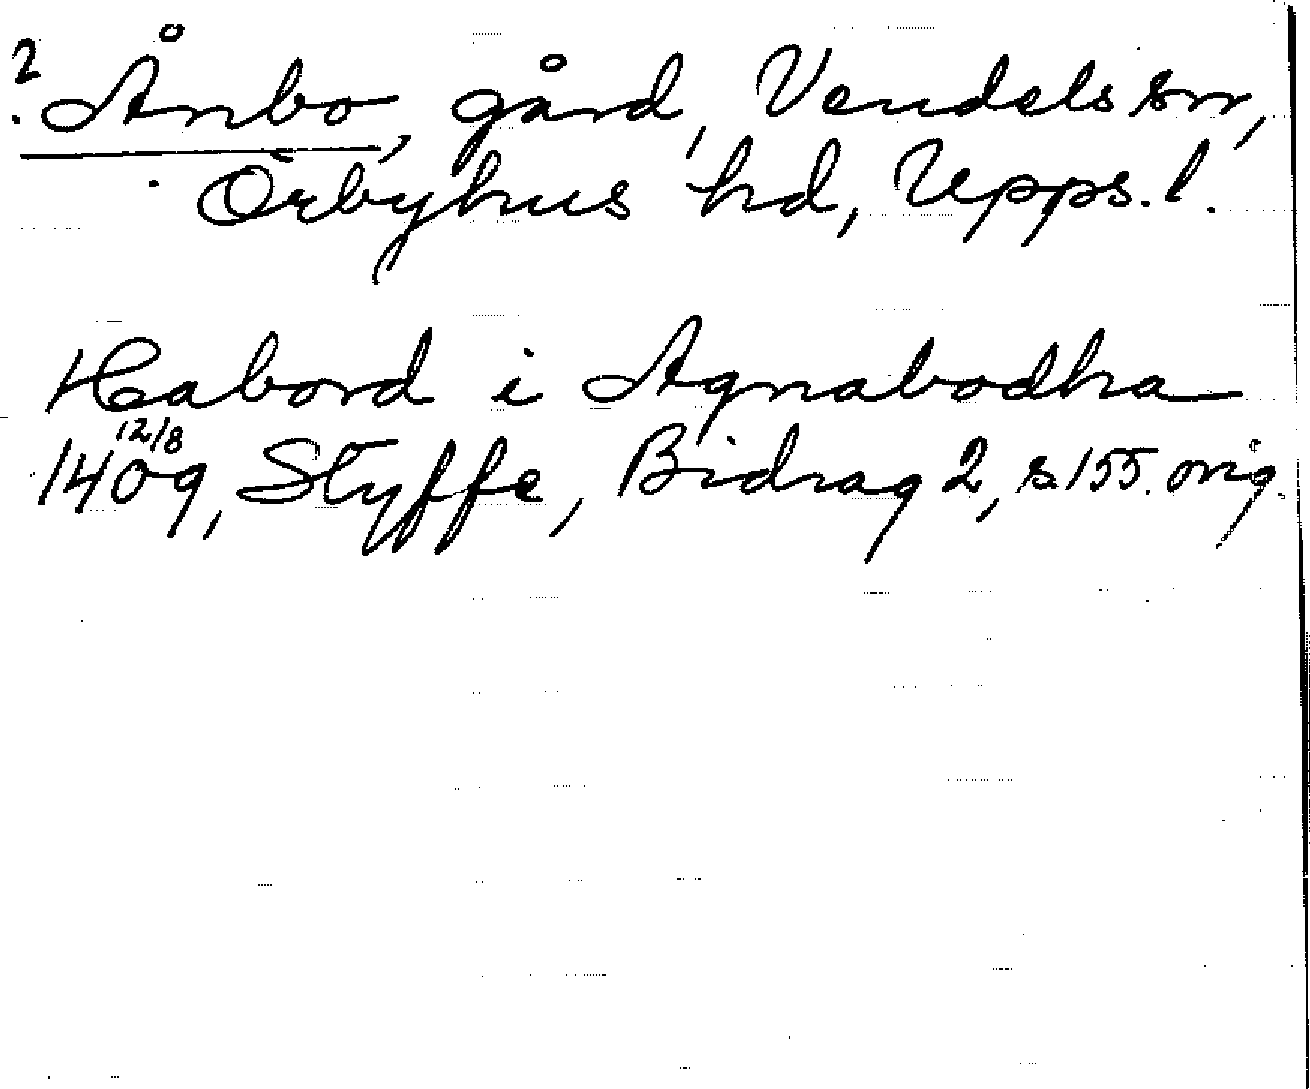 ? Ånbo, gård, Vendels sn,
Örbyhus hd, Upps. l.
Habord i Agnabodha
12/8
1409, Styffe, Bidrag 2, s 155. orig.